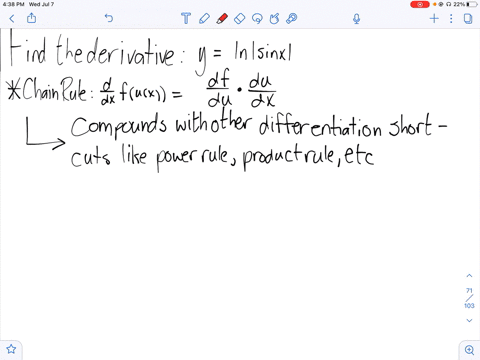 4:38 PM Wed Jul 7
22%
Find the derivative: y = ln|sinx|
*Chain Rule: d/dx f(u(x)) = df/du · du/dx
Compounds with other differentiation short-
cuts like power rule, product rule, etc
71
/
103